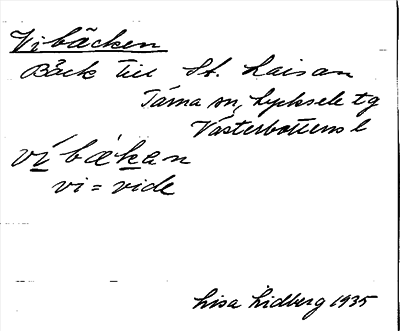 Vibäcken
Bäck till St. Laisan
Tärna sn, Lycksele tg
Västerbottens l
ví bækan
vi = vide
Lisa Lidberg 1935